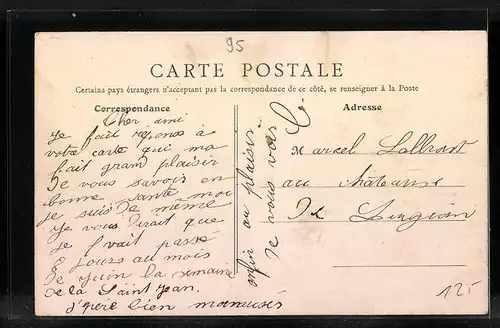 95
CARTE POSTALE
Certains pays étrangers n'acceptant pas la correspondance de ce côté, se renseigner à la Poste
Correspondance
Cher ami
Je fait réponse à
votre carte qui ma
fait grand plaisir
De vous savoir en
bonne santé moi
je suis de même
Je vous dirait que
Je vait passé
8 jours au mois
De juin la semaine
de la Saint Jean.
J'père bien m'amusés
enfin au plaisir
de vous voir
Adresse
Marcel
au château
De
125